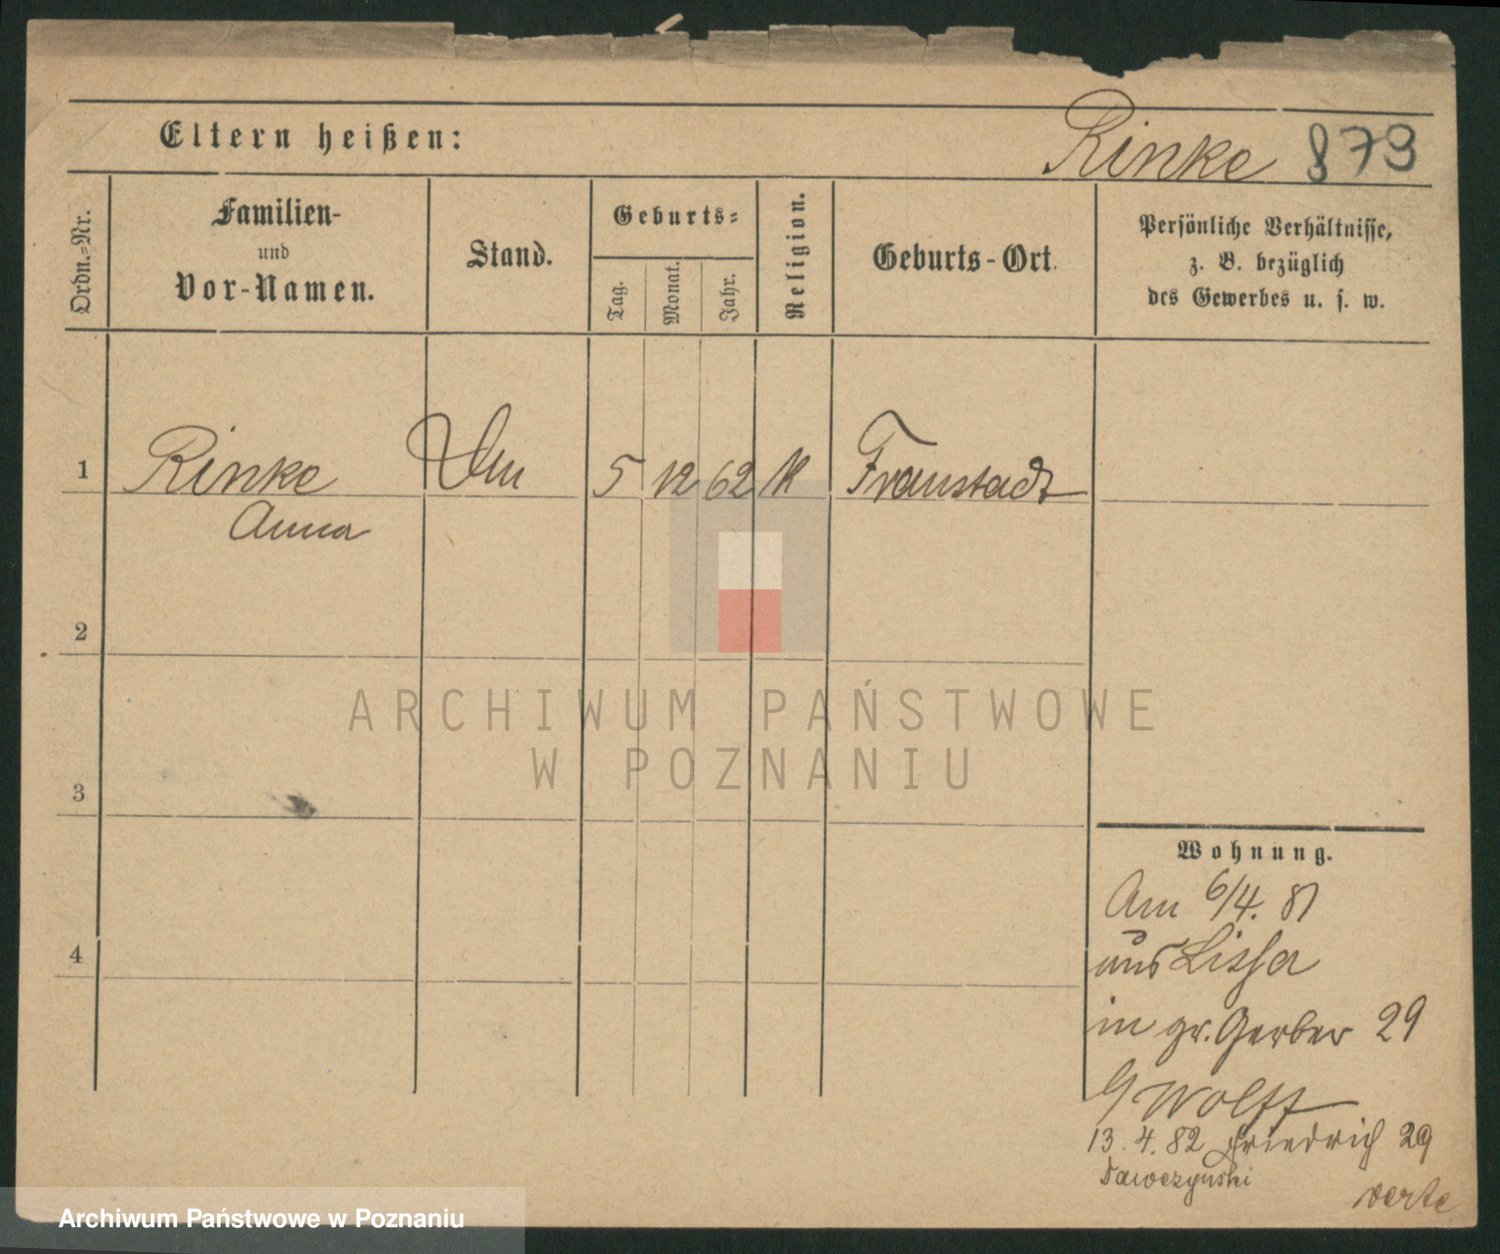 Eltern heißen:
Rinke 879
Ordn.=Nr.
Familien-
und
Vor-Namen.
Stand.
Geburts=
Tag.
Monat.
Jahr.
Religion.
Geburts-Ort.
Persönliche Verhältnisse,
z. B. bezüglich
des Gewerbes u. s. w.
1 Rinke 5 12 62 K Fraustadt
Anna
2
3
4
ARCHIWUM PAŃSTWOWE
W POZNANIU
Wohnung.
Am 6/4. 81
aus Lissa
in gr. Gerber 29
b/ Wolff
13. 4. 82 Friedrich 29
Dawczynski
verte
Archiwum Państwowe w Poznaniu